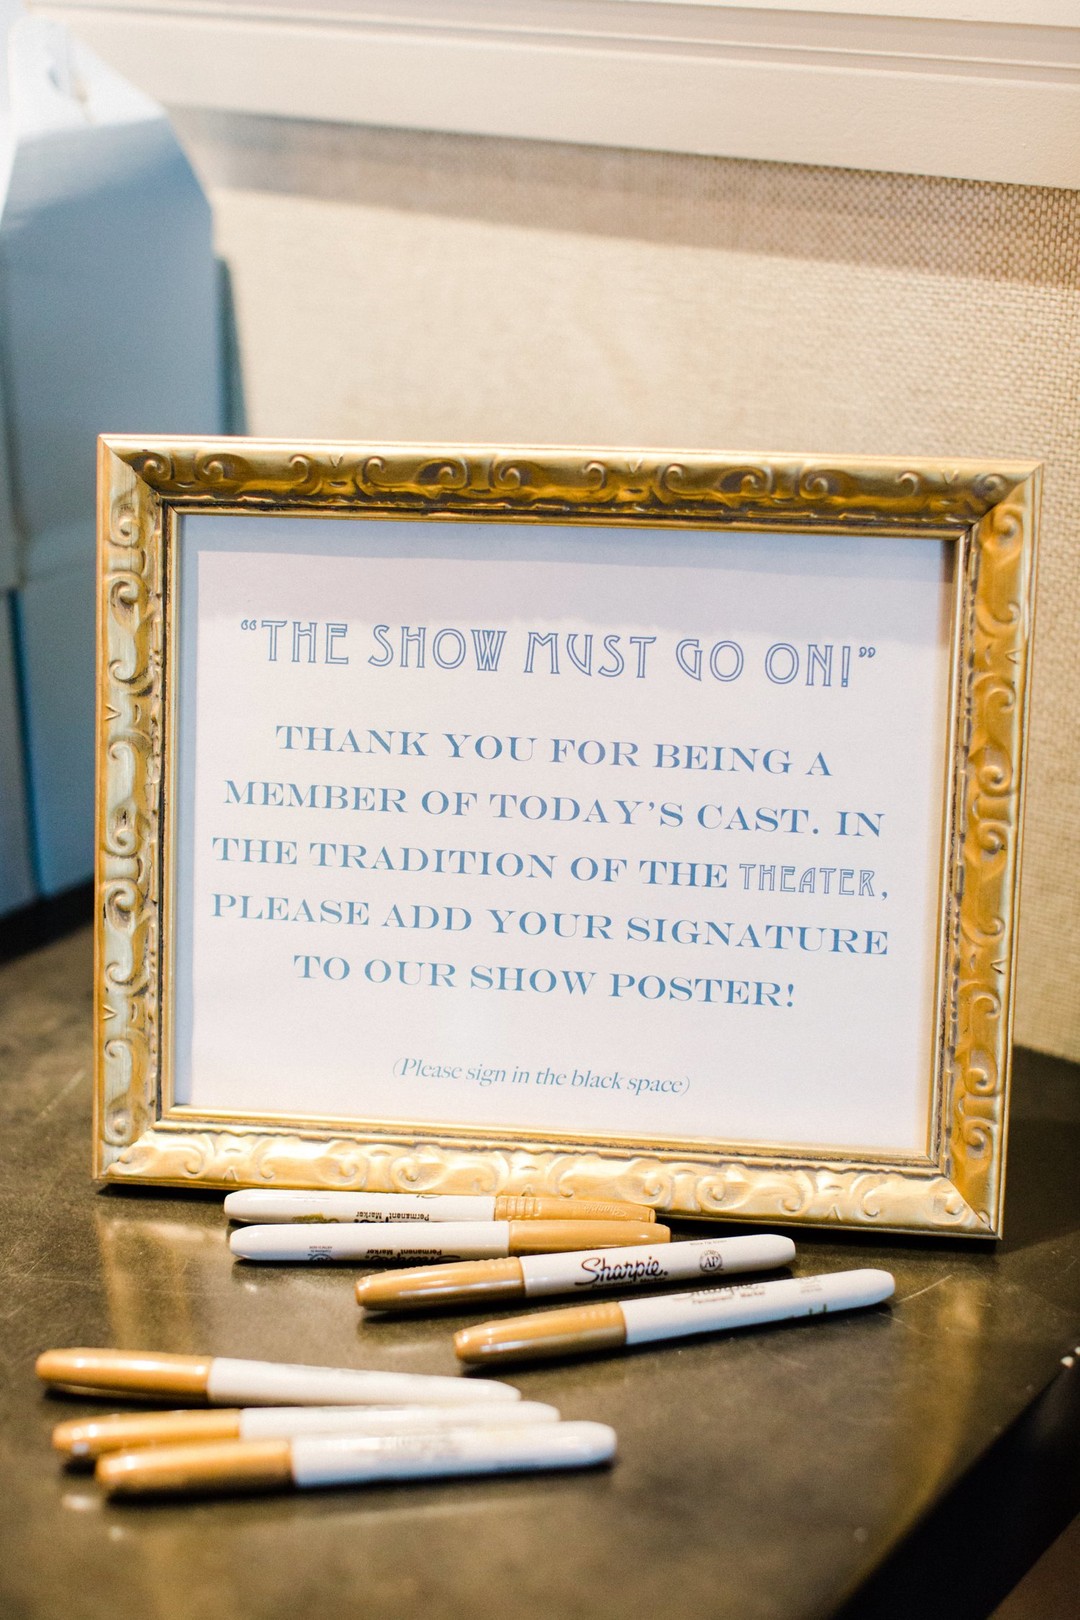 “THE SHOW MUST GO ON!”
THANK YOU FOR BEING A
MEMBER OF TODAY’S CAST. IN
THE TRADITION OF THE THEATER,
PLEASE ADD YOUR SIGNATURE
TO OUR SHOW POSTER!
(Please sign in the black space)
Permanent Marker
Sharpie. Permanent Marker
Sharpie.
AP
Permanent Marker